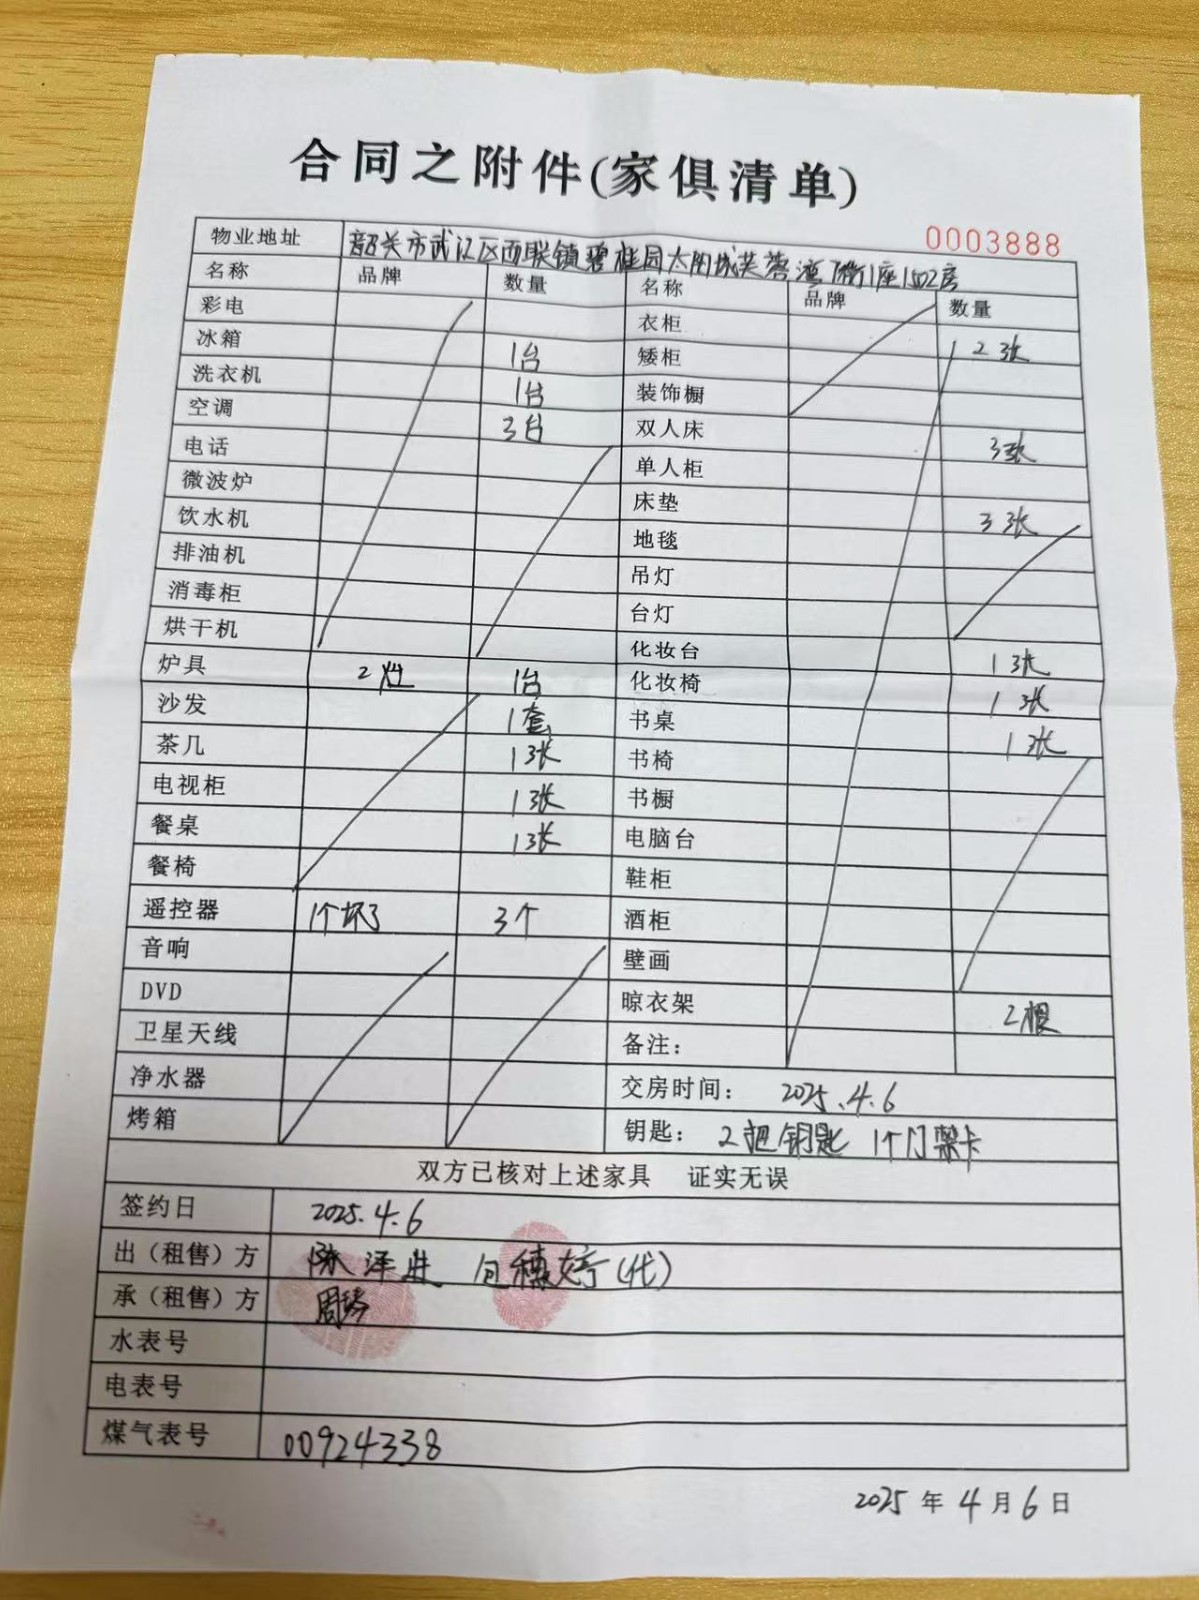 合同之附件(家俱清单)
0003888
物业地址 韶关市武江区西联镇碧桂园太阳城芙蓉湾7街1座1502房
名称 品牌 数量 名称 品牌 数量
彩电 衣柜
冰箱 1台 矮柜 2张
洗衣机 1台 装饰橱
空调 3台 双人床 3张
电话 单人柜
微波炉 床垫 3张
饮水机 地毯
排油机 吊灯
消毒柜 台灯
烘干机 化妆台 1张
炉具 2灶 1台 化妆椅 1张
沙发 1套 书桌 1张
茶几 1张 书椅
电视柜 1张 书橱
餐桌 1张 电脑台
餐椅 鞋柜
遥控器 1个坏了 3个 酒柜
音响 壁画
DVD 晾衣架 2根
卫星天线 备注：
净水器 交房时间： 2025.4.6
烤箱 钥匙： 2把钥匙 1个门禁卡
双方已核对上述家具 证实无误
签约日 2025.4.6
出（租售）方 陈泽 穗婷(代)
承（租售）方 周琴
水表号
电表号
煤气表号 00924338
2025 年 4 月 6 日